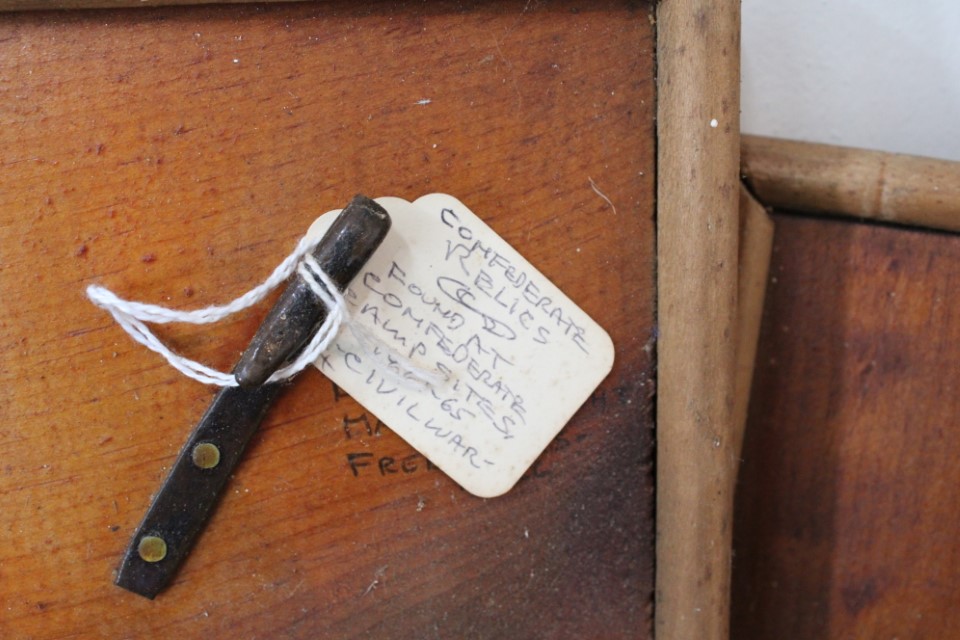 CONFEDERATE
RELICS
FOUND AT
CONFEDERATE
CAMP SITES,
+ CIVIL WAR-